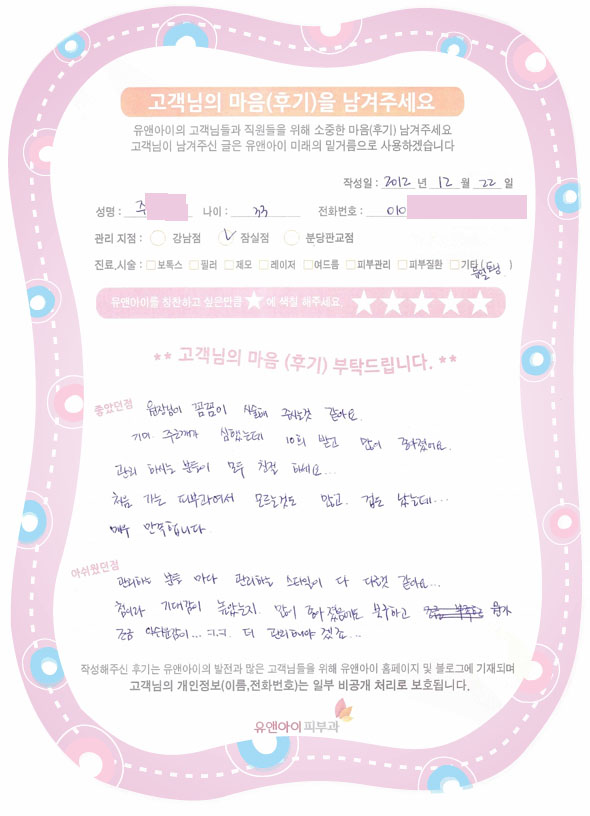 고객님의 마음(후기)을 남겨주세요
유앤아이의 고객님들과 직원들을 위해 소중한 마음(후기) 남겨주세요
고객님이 남겨주신 글은 유앤아이 미래의 밑거름으로 사용하겠습니다
작성일 : 2012 년 12 월 22 일
성명 : 주 나이 : 33 전화번호 : 010
관리 지점 : 강남점 잠실점 분당판교점
진료,시술 : 보톡스 필러 제모 레이저 여드름 피부관리 피부질환 기타 ( )
유앤아이를 칭찬하고 싶은만큼 ★ 에 색칠 해주세요. ★★★★★
** 고객님의 마음 (후기) 부탁드립니다. **
좋았던점 원장님이 꼼꼼이 시술해 주시는것 같아요.
기미 주근깨가 심했는데 10회 받고 많이 좋아졌어요.
관리 하시는 분들이 모두 친절 하세요...
처음 가는 피부과여서 모르는것도 많고. 겁도 났는데...
매우 만족합니다.
아쉬웠던점
관리하는 분들 마다 관리하는 스타일이 다 다른것 같아요...
첨이라 기대감이 높았는지. 많이 좋아졌음에도 불구하고
조금 아쉬운감이... ㅋㅋ. 더 관리해야 겠죠...
작성해주신 후기는 유앤아이의 발전과 많은 고객님들을 위해 유앤아이 홈페이지 및 블로그에 기재되며
고객님의 개인정보(이름,전화번호)는 일부 비공개 처리로 보호됩니다.
유앤아이피부과